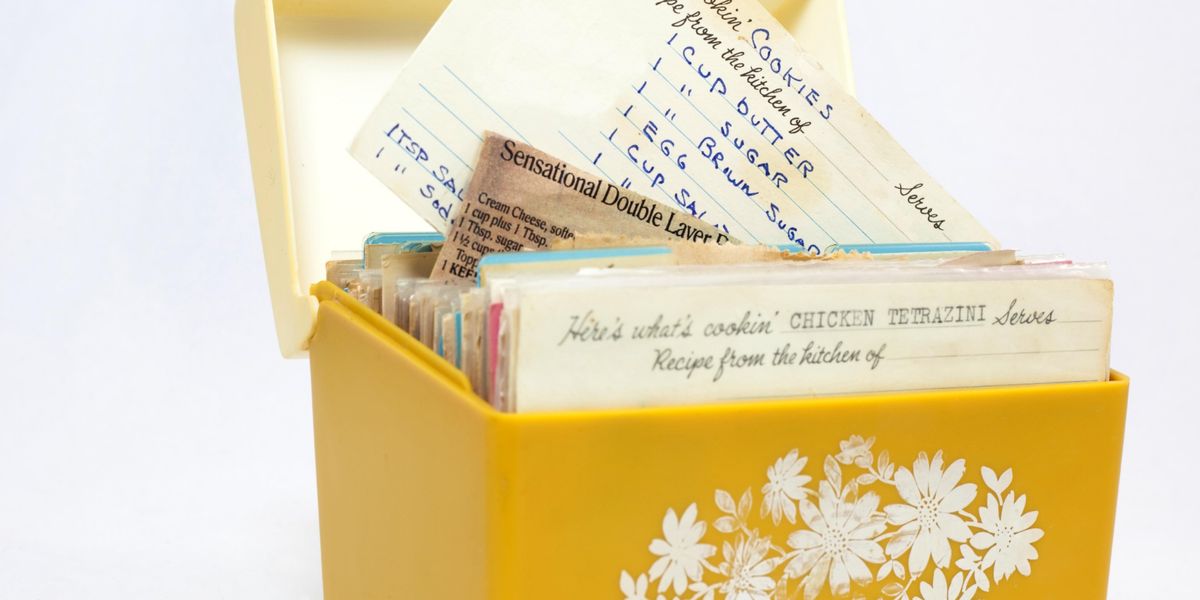 cookin' COOKIES
from the kitchen of
1 CUP BUTTER
1 " SUGAR
1 " BROWN SUGAR
1 EGG
1 CUP
1 "
Serves
1 TSP
1 "
Sensational Double Layer
Cream Cheese,
1 cup plus 1 Tbsp.
1 Tbsp. sugar
1½
Here's what's cookin' CHICKEN TETRAZINI Serves
Recipe from the kitchen of